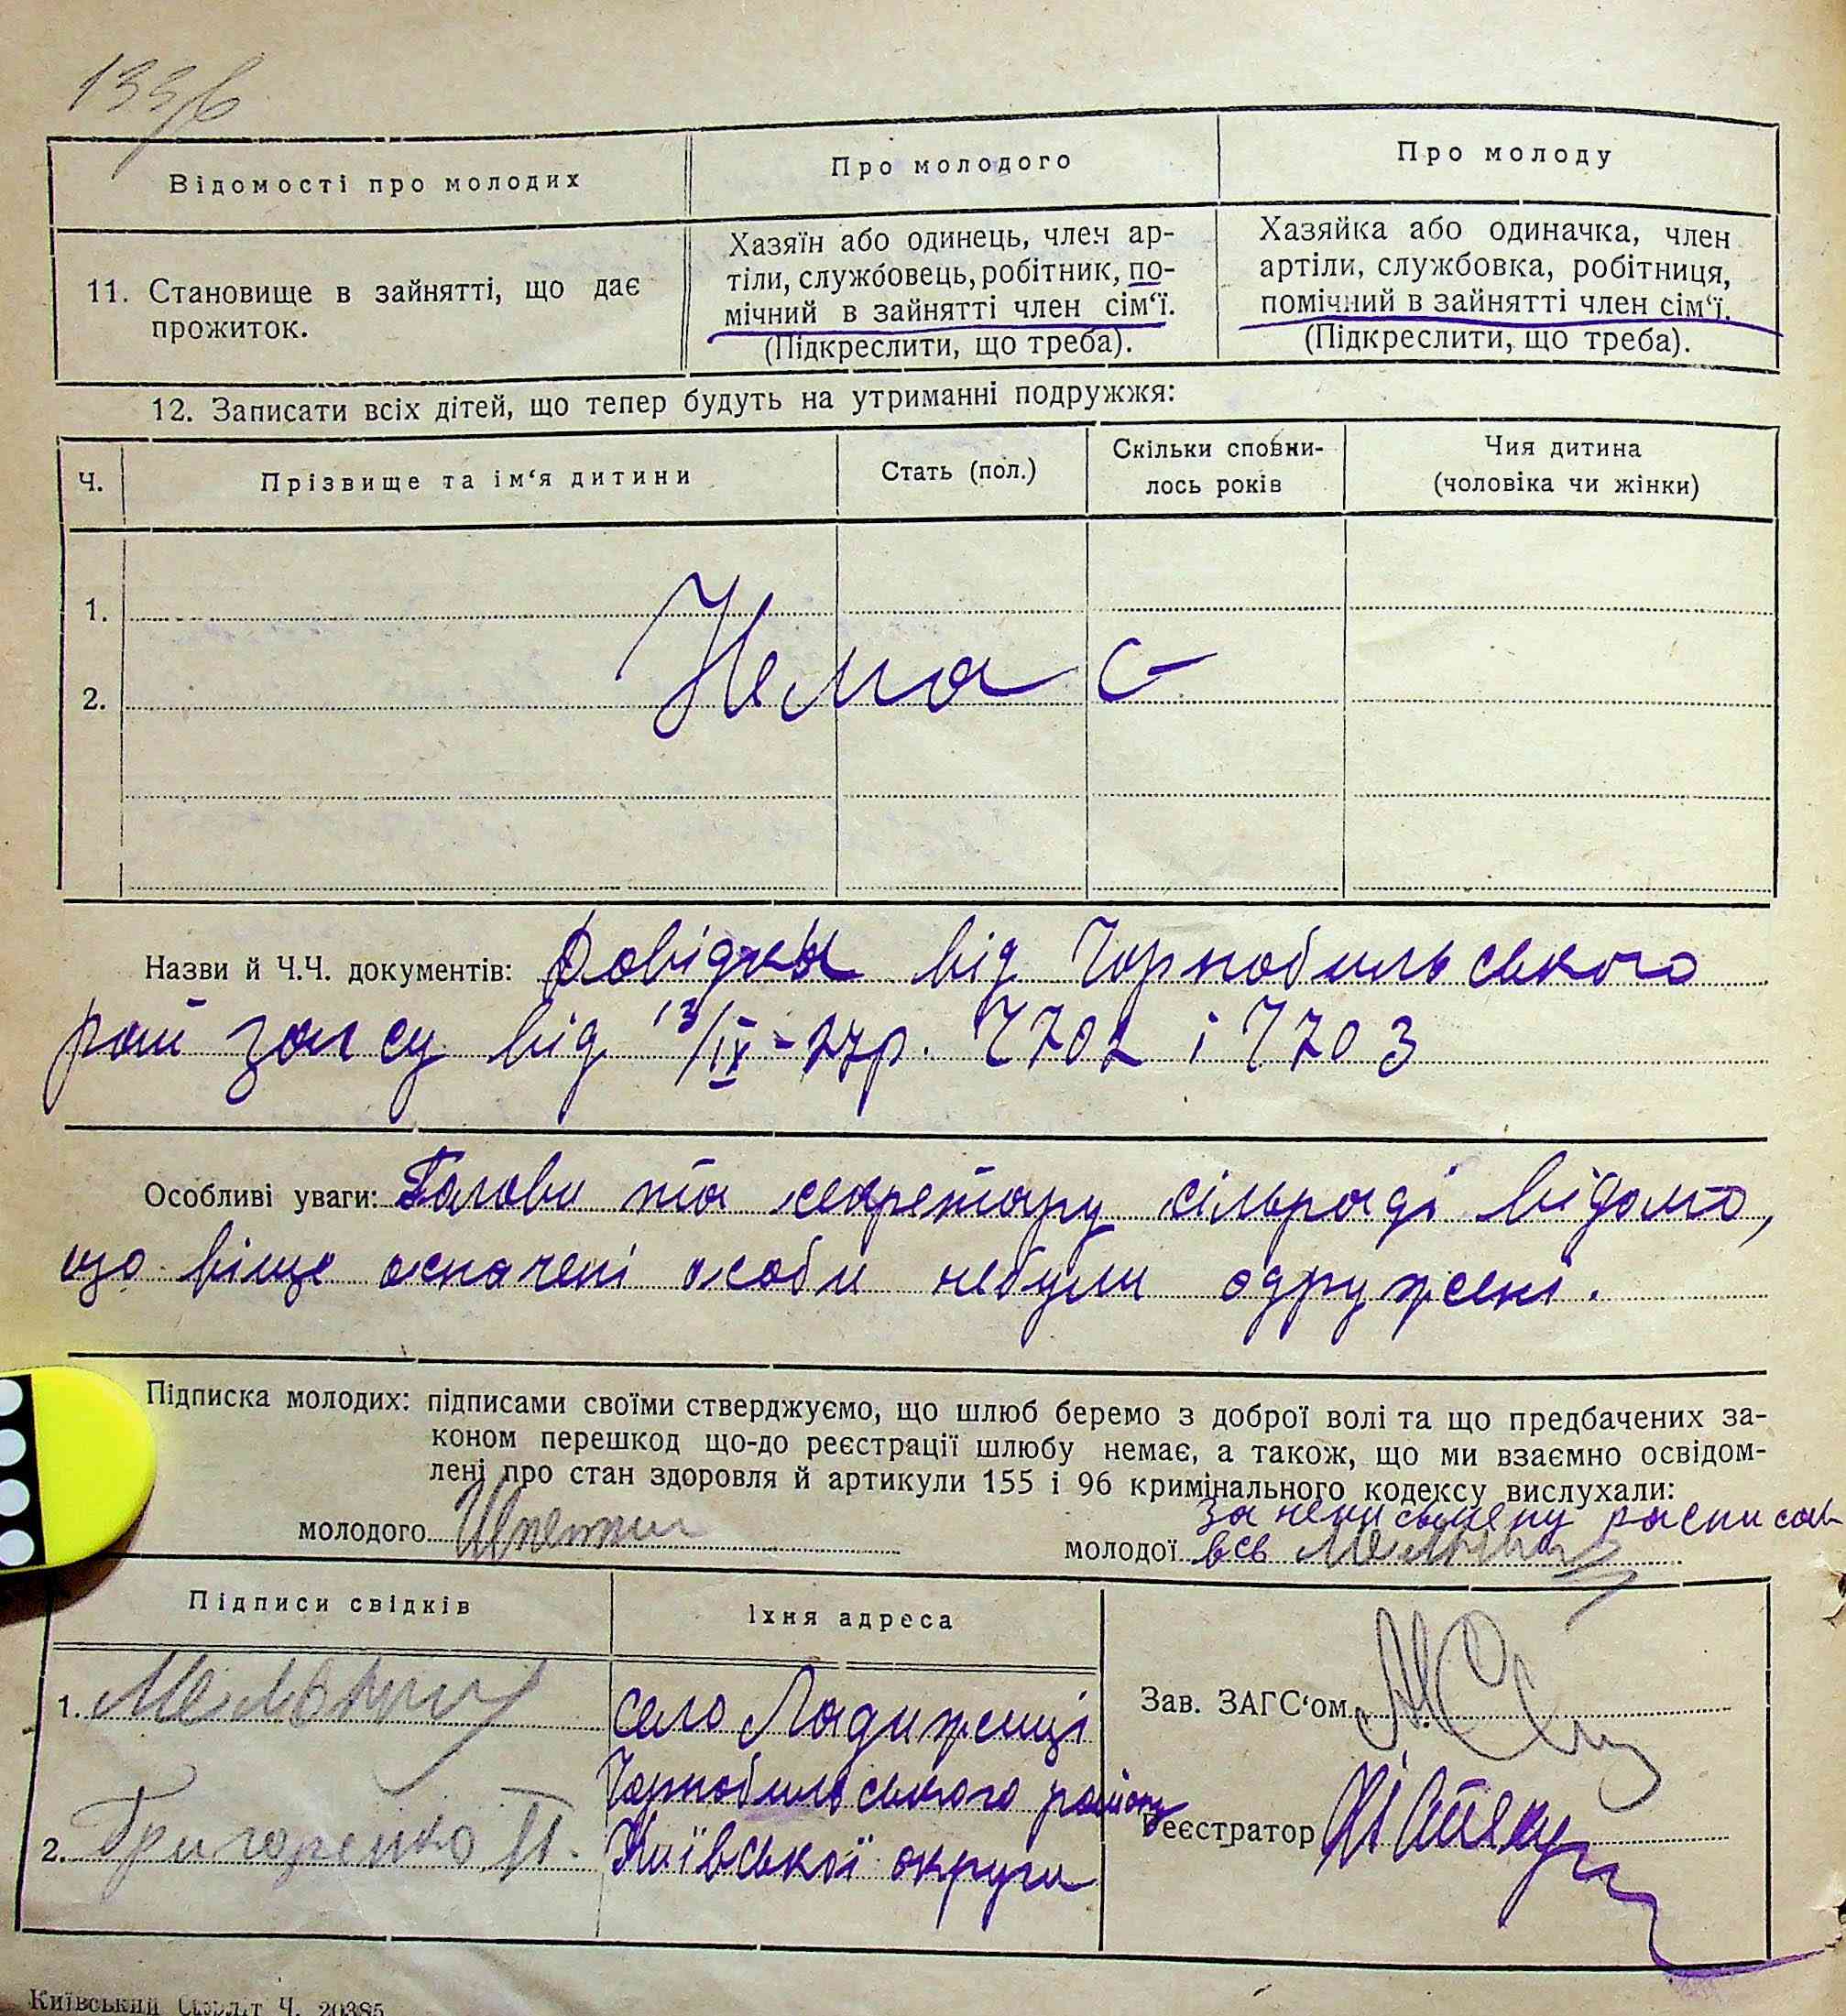 Відомості про молодих
Про молодого
Про молоду
11. Становище в зайнятті, що дає
прожиток.
Хазяїн або одинець, член ар-
тіли, службовець, робітник, по-
мічний в зайнятті член сім‘ї.
(Підкреслити, що треба).
Хазяйка або одиначка, член
артіли, службовка, робітниця,
помічний в зайнятті член сім‘ї.
(Підкреслити, що треба).
12. Записати всіх дітей, що тепер будуть на утриманні подружжя:
Ч.
Прізвище та ім‘я дитини
Стать (пол.)
Скільки сповни-
лось років
Чия дитина
(чоловіка чи жінки)
1.
Немає
2.
Назви й Ч.Ч. документів: Довідки від Чорнобильського
рай загсу від 13/IX-27р. Ч702 і Ч703
Особливі уваги: Голови та секретару сільраді відомо,
що више означені особи небули одружені.
Підписка молодих: підписами своїми стверджуємо, що шлюб беремо з доброї волі та що предбачених за-
коном перешкод що-до реєстрації шлюбу немає, а також, що ми взаємно освідом-
лені про стан здоровля й артикули 155 і 96 кримінального кодексу вислухали:
молодого
за неписьмену росписав
молодої вся
Підписи свідків
Їхня адреса
1.
село Ладижичі
Чорнобильського району
2. Григоренко П.
Київської округи
Зав. ЗАГС‘ом
Реєстратор
Київський Ч. 20385